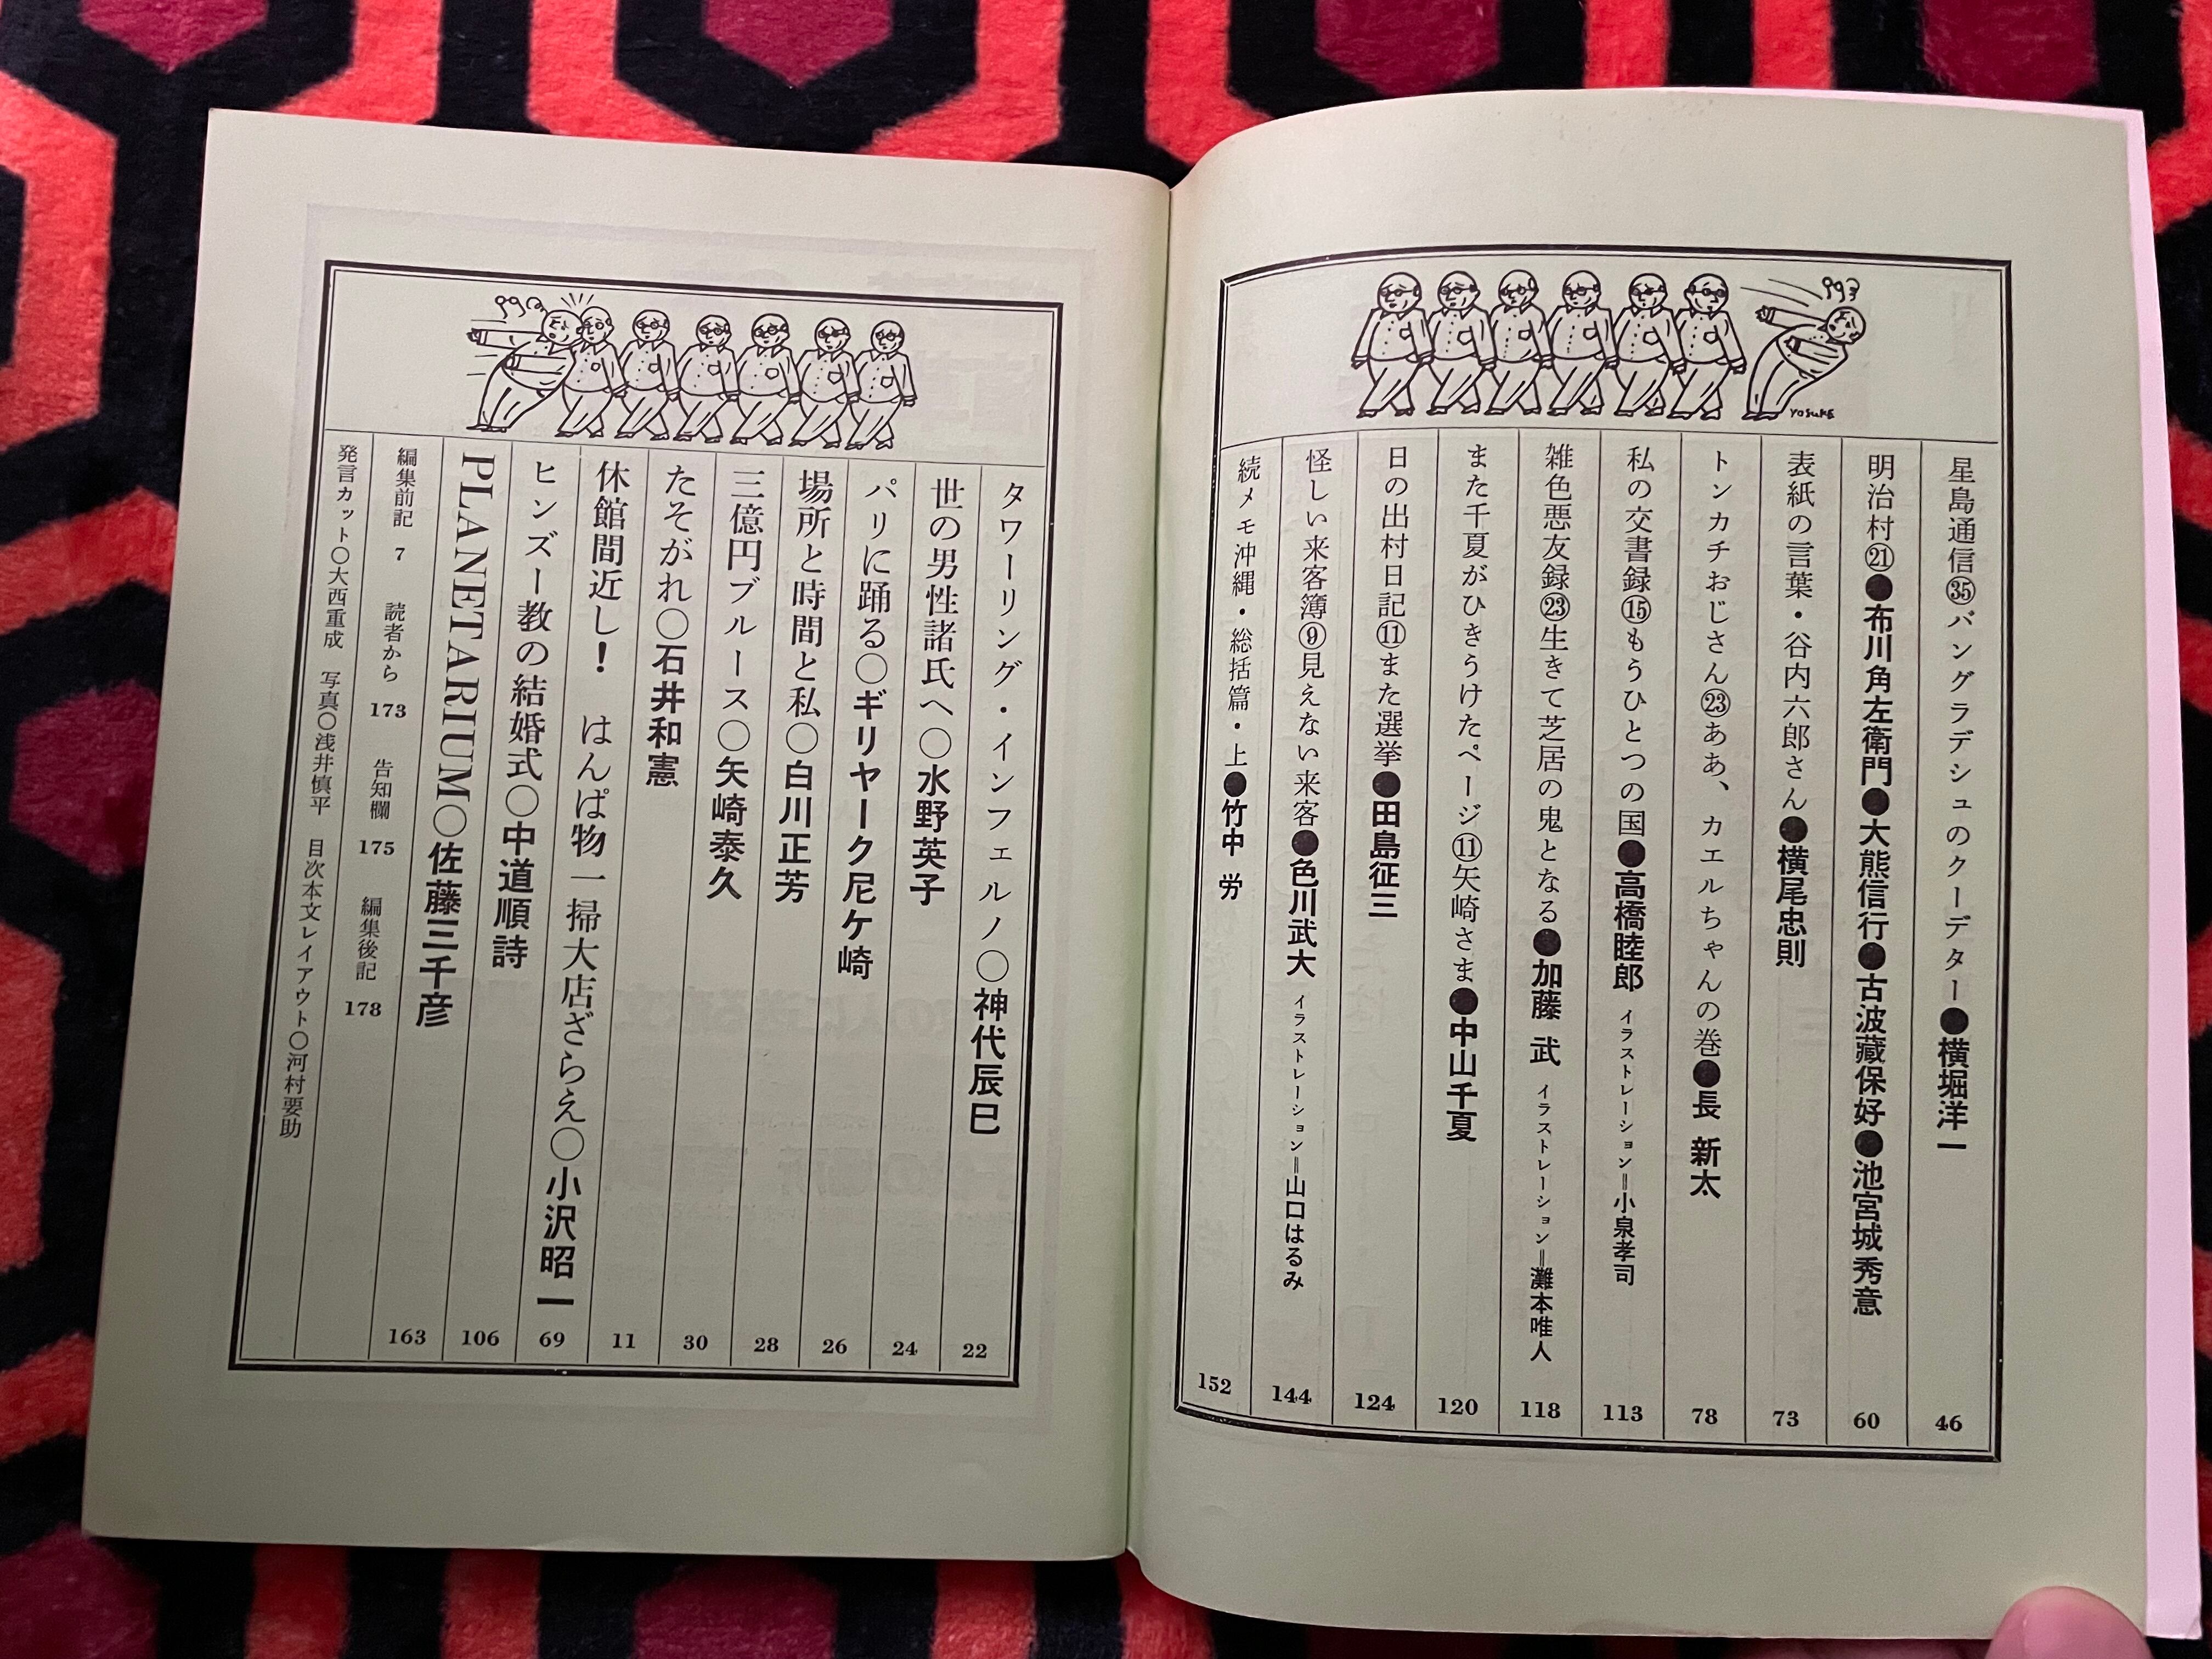 yosuke
星島通信㉟バングラデシュのクーデター●横堀洋一 46
明治村㉑●布川角左衛門●大熊信行●古波藏保好●池宮城秀意 60
表紙の言葉・谷内六郎さん●横尾忠則 73
トンカチおじさん㉓ああ、カエルちゃんの巻●長 新太 78
私の交書録⑮もうひとつの国●高橋睦郎 イラストレーション=小泉孝司 113
雑色悪友録㉓生きて芝居の鬼となる●加藤 武 イラストレーション=灘本唯人 118
また千夏がひきうけたページ⑪矢崎さま●中山千夏 120
日の出村日記⑪また選挙●田島征三 124
怪しい来客簿⑨見えない来客●色川武大 イラストレーション=山口はるみ 144
続メモ沖縄・総括篇・上●竹中 労 152
タワーリング・インフェルノ○神代辰巳 22
世の男性諸氏へ○水野英子 24
パリに踊る○ギリヤーク尼ケ崎 26
場所と時間と私○白川正芳 28
三億円ブルース○矢崎泰久 30
たそがれ○石井和憲 11
休館間近し! はんぱ物一掃大店ざらえ○小沢昭一 69
ヒンズー教の結婚式○中道順詩 106
PLANETARIUM○佐藤三千彦 163
編集前記 7 読者から 173 告知欄 175 編集後記 178
発言カット○大西重成 写真○浅井慎平 目次本文レイアウト○河村要助